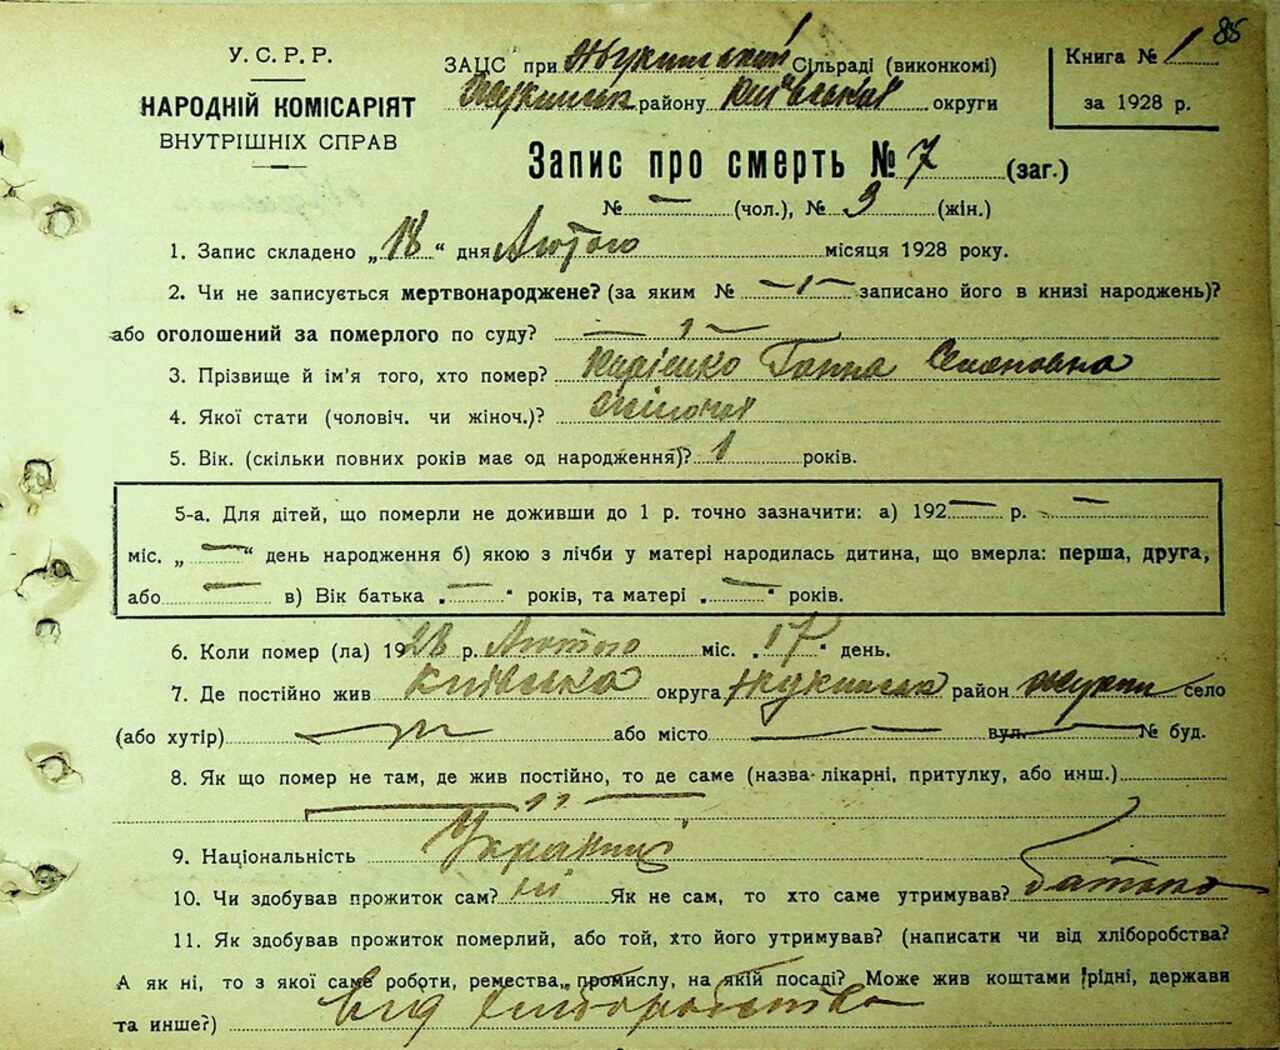 85
У. С. Р. Р.
НАРОДНІЙ КОМІСАРІЯТ
ВНУТРІШНІХ СПРАВ
ЗАЦС при Жукинський Сільраді (виконкомі)
Жукинськ району Київської округи
Книга № 1
за 1928 р.
Запис про смерть № 7 (заг.)
№ — (чол.), № 3 (жін.)
1. Запис складено „18“ дня Лютого місяця 1928 року.
2. Чи не записується мертвонароджене? (за яким № —„— записано його в книзі народжень)?
або оголошений за померлого по суду? —„—
3. Прізвище й ім'я того, хто помер? Ганна Степановна
4. Якої стати (чоловіч. чи жіноч.)? Жіночої
5. Вік. (скільки повних років має од народження)? 1 років.
5-а. Для дітей, що померли не доживши до 1 р. точно зазначити: а) 192— р. —
міс. „—“ день народження б) якою з лічби у матері народилась дитина, що вмерла: перша, друга,
або — в) Вік батька „—“ років, та матері „—“ років.
6. Коли помер (ла) 1928 р. Лютого міс. „17“ день.
7. Де постійно жив Київська округа Жукинськ район Жукин село
(або хутір) —„— або місто — — вул. — № буд.
8. Як що помер не там, де жив постійно, то де саме (назва лікарні, притулку, або инш.)
—„—
9. Національність Українці
10. Чи здобував прожиток сам? ні Як не сам, то хто саме утримував? батько
11. Як здобував прожиток померлий, або той, хто його утримував? (написати чи від хліборобства?
А як ні, то з якої саме роботи, ремества, промислу, на якій посаді? Може жив коштами рідні, держави
та инше?) Від хліборобства